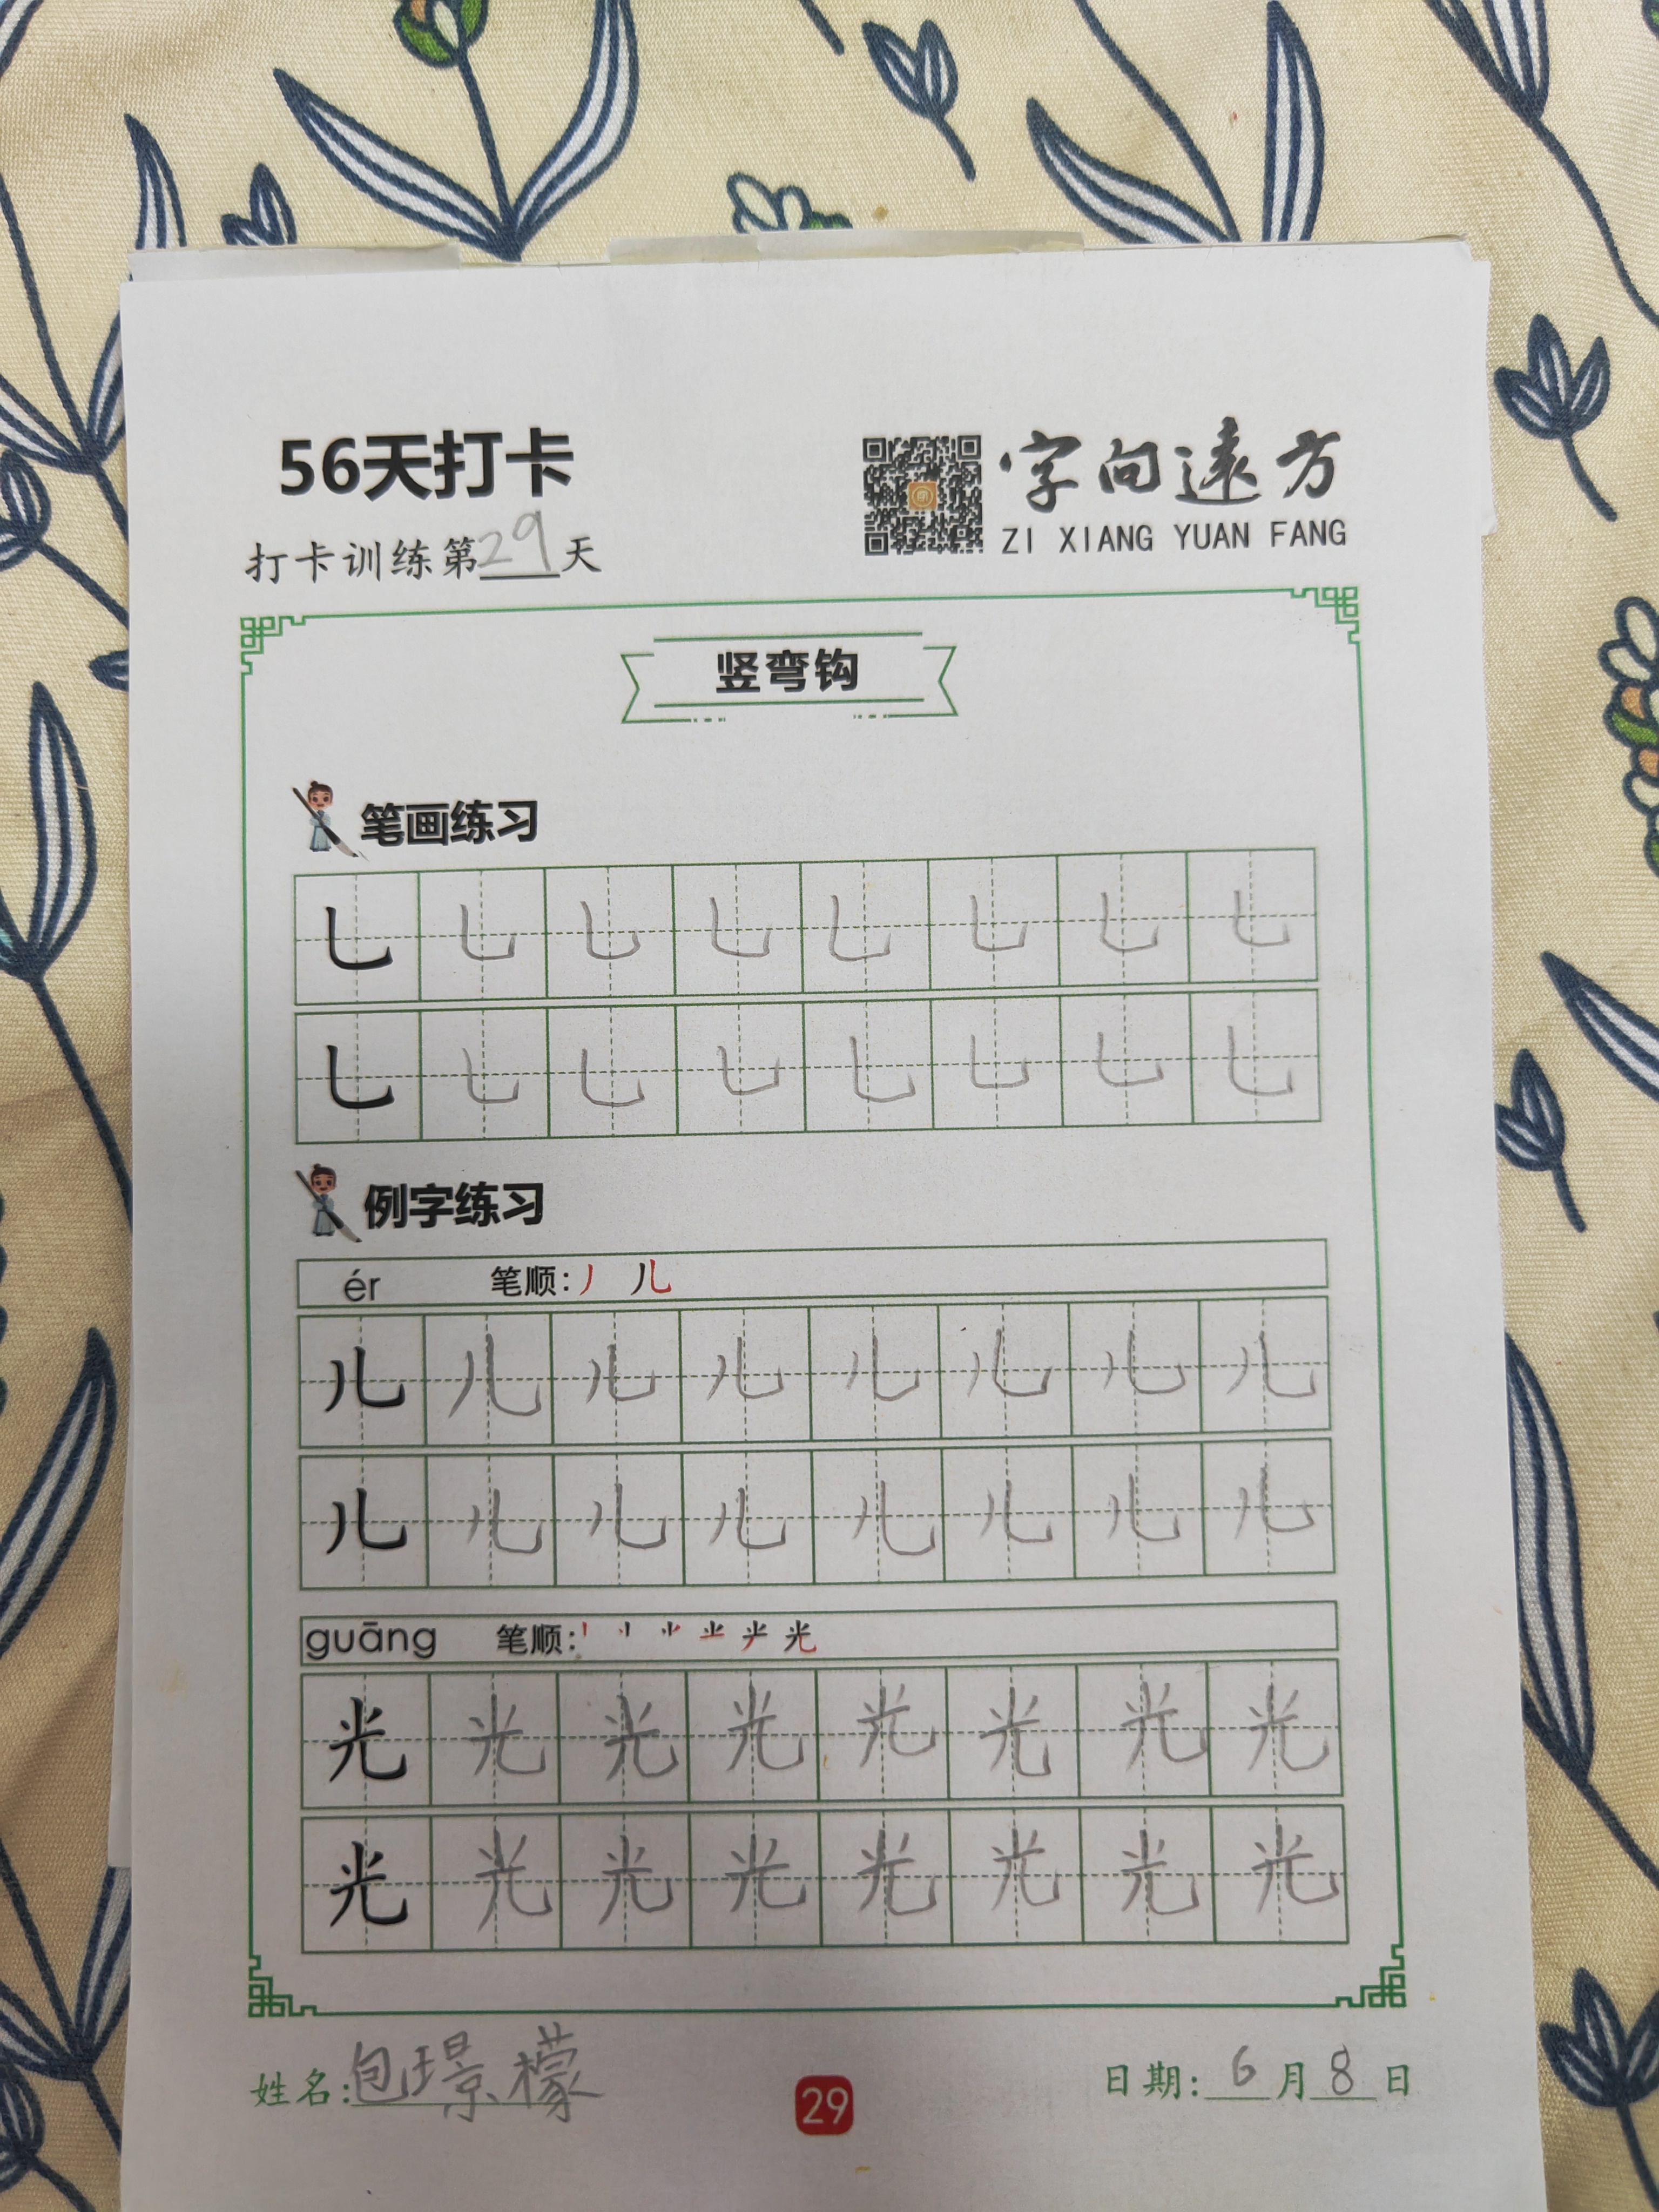 56天打卡
字向遠方
ZI XIANG YUAN FANG
打卡训练第29天
竖弯钩
笔画练习
乚 乚 乚 乚 乚 乚 乚 乚
乚 乚 乚 乚 乚 乚 乚 乚
例字练习
ér 笔顺: 丿 儿
儿 儿 儿 儿 儿 儿 儿 儿
儿 儿 儿 儿 儿 儿 儿 儿
guāng 笔顺: 光
光 光 光 光 光 光 光 光
光 光 光 光 光 光 光 光
姓名: 包璟檬
29
日期: 6月8日